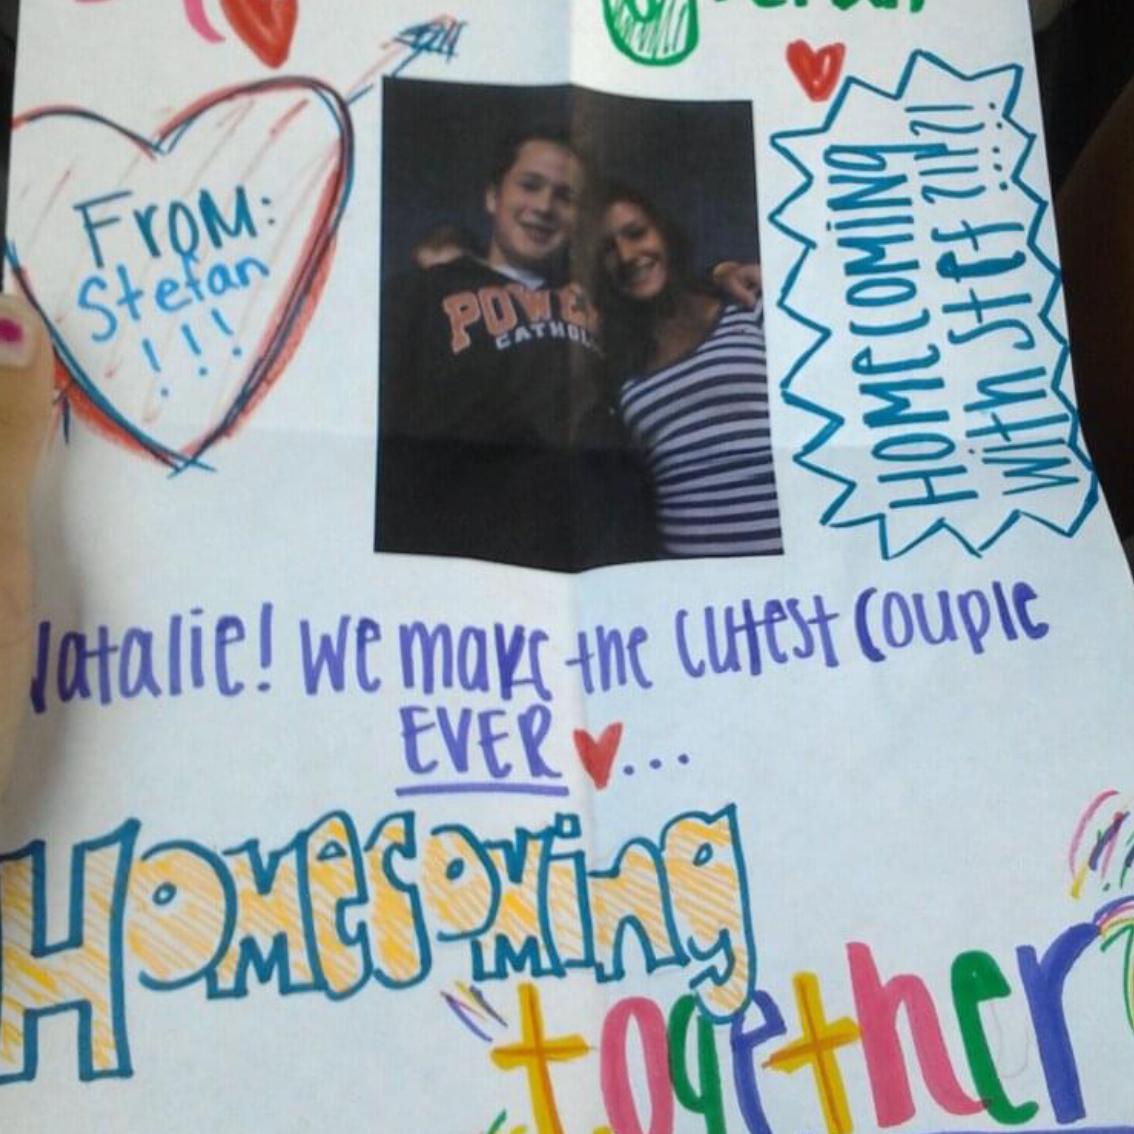 FROM:
Stefan
!!!
POWE
CATHOL
HOMECOMING
with Steff
Natalie! We make the cutest couple
EVER ♥...
Homecoming
together